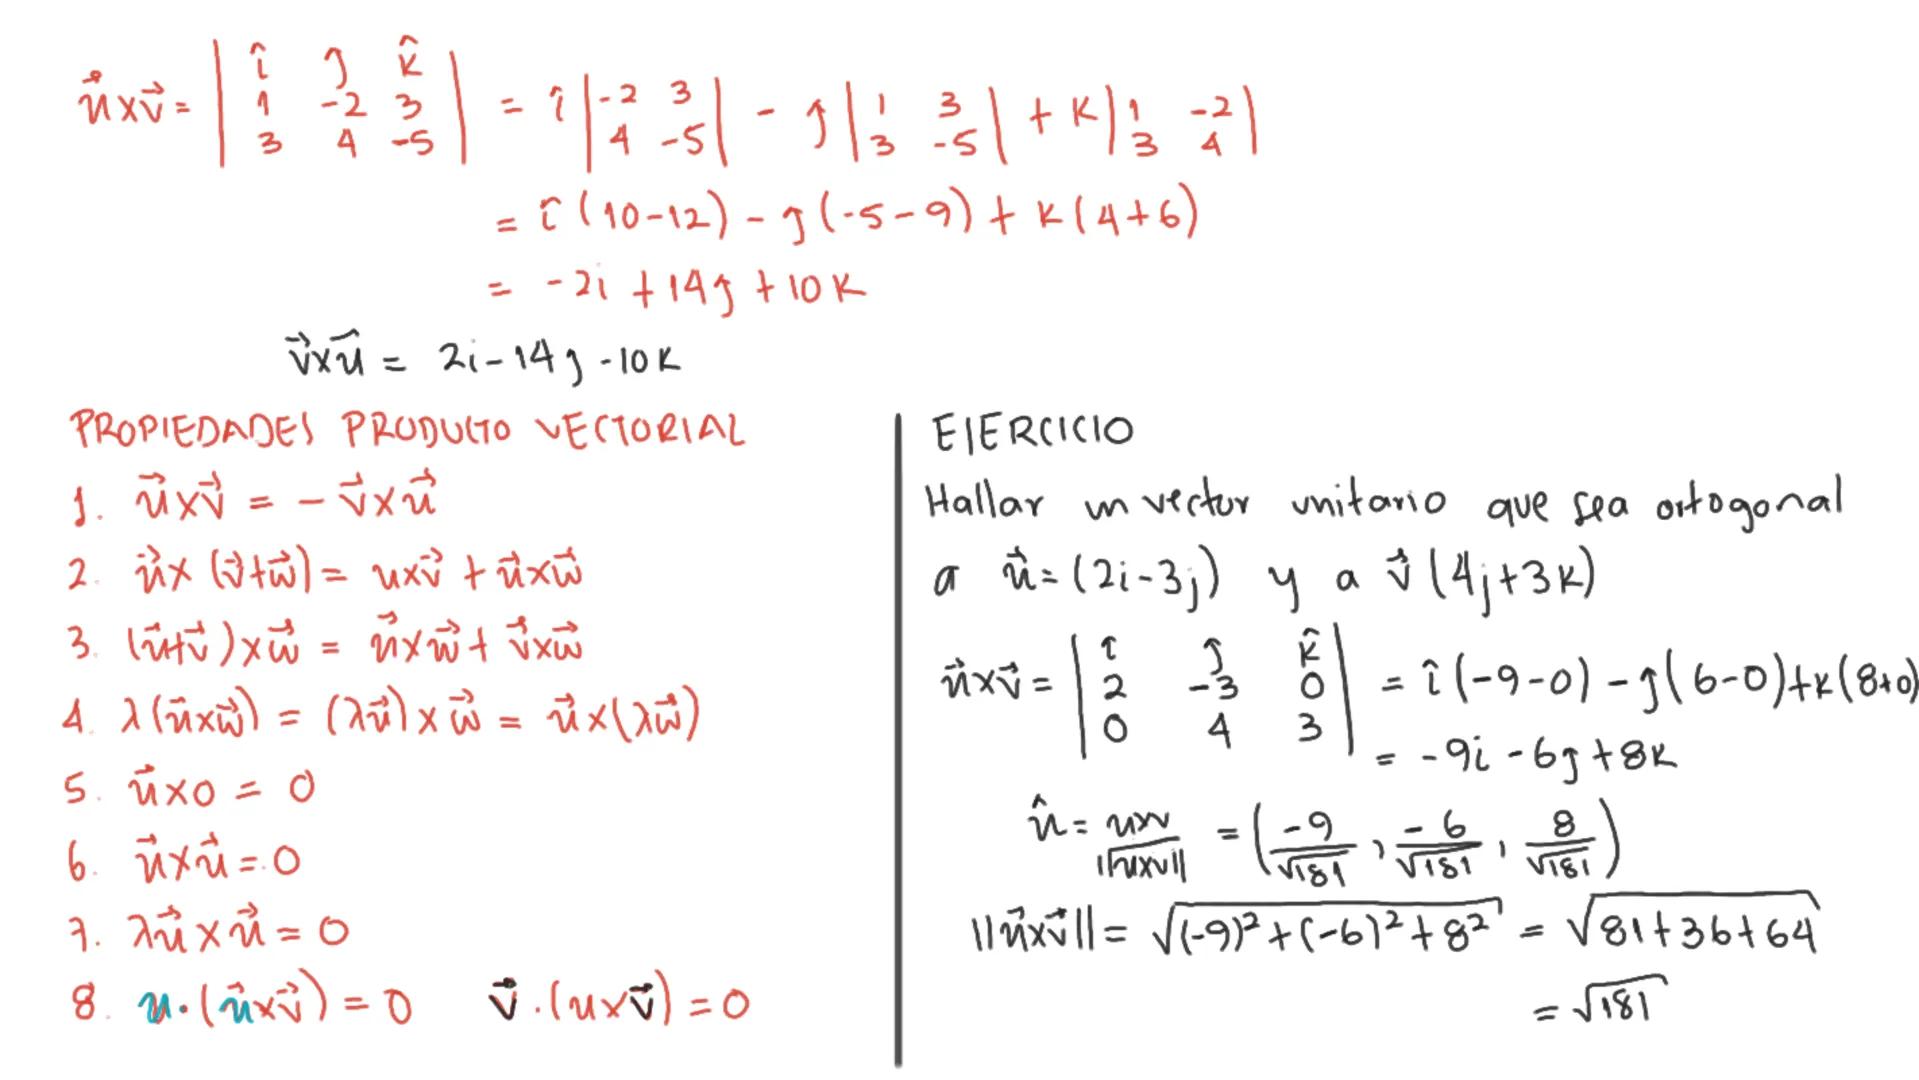 u⃗xv⃗ = | î ĵ k̂ | = î | -2 3 | - ĵ | 1 3 | + k | 1 -2 |
| 1 -2 3 | | 4 -5 | | 3 -5 | | 3 4 |
| 3 4 -5 |
= î (10-12) - j (-5-9) + k (4+6)
= -2i + 14j + 10k
v⃗xu⃗ = 2i - 14j - 10k
PROPIEDADES PRODUCTO VECTORIAL
1. u⃗xv⃗ = - v⃗xu⃗
2. u⃗x (v⃗+w⃗) = uxv⃗ + u⃗xw⃗
3. (u⃗+v⃗)xw⃗ = u⃗xw⃗ + v⃗xw⃗
4. λ(u⃗xw⃗) = (λu⃗)xw⃗ = u⃗x(λw⃗)
5. u⃗x0 = 0
6. u⃗xu⃗ = 0
7. λu⃗xu⃗ = 0
8. u·(u⃗xv⃗) = 0 v⃗·(uxv⃗) = 0
EJERCICIO
Hallar un vector unitario que sea ortogonal
a u⃗=(2i-3j) y a v⃗ (4j+3k)
u⃗xv⃗ = | î ĵ k̂ | = î(-9-0) - j(6-0)+k(8+0)
| 2 -3 0 |
| 0 4 3 |
= -9i -6j +8k
û = uxv / ||uxv|| = (-9/√181, -6/√181, 8/√181)
||u⃗xv⃗|| = √((-9)²+(-6)²+8²) = √(81+36+64)
= √181